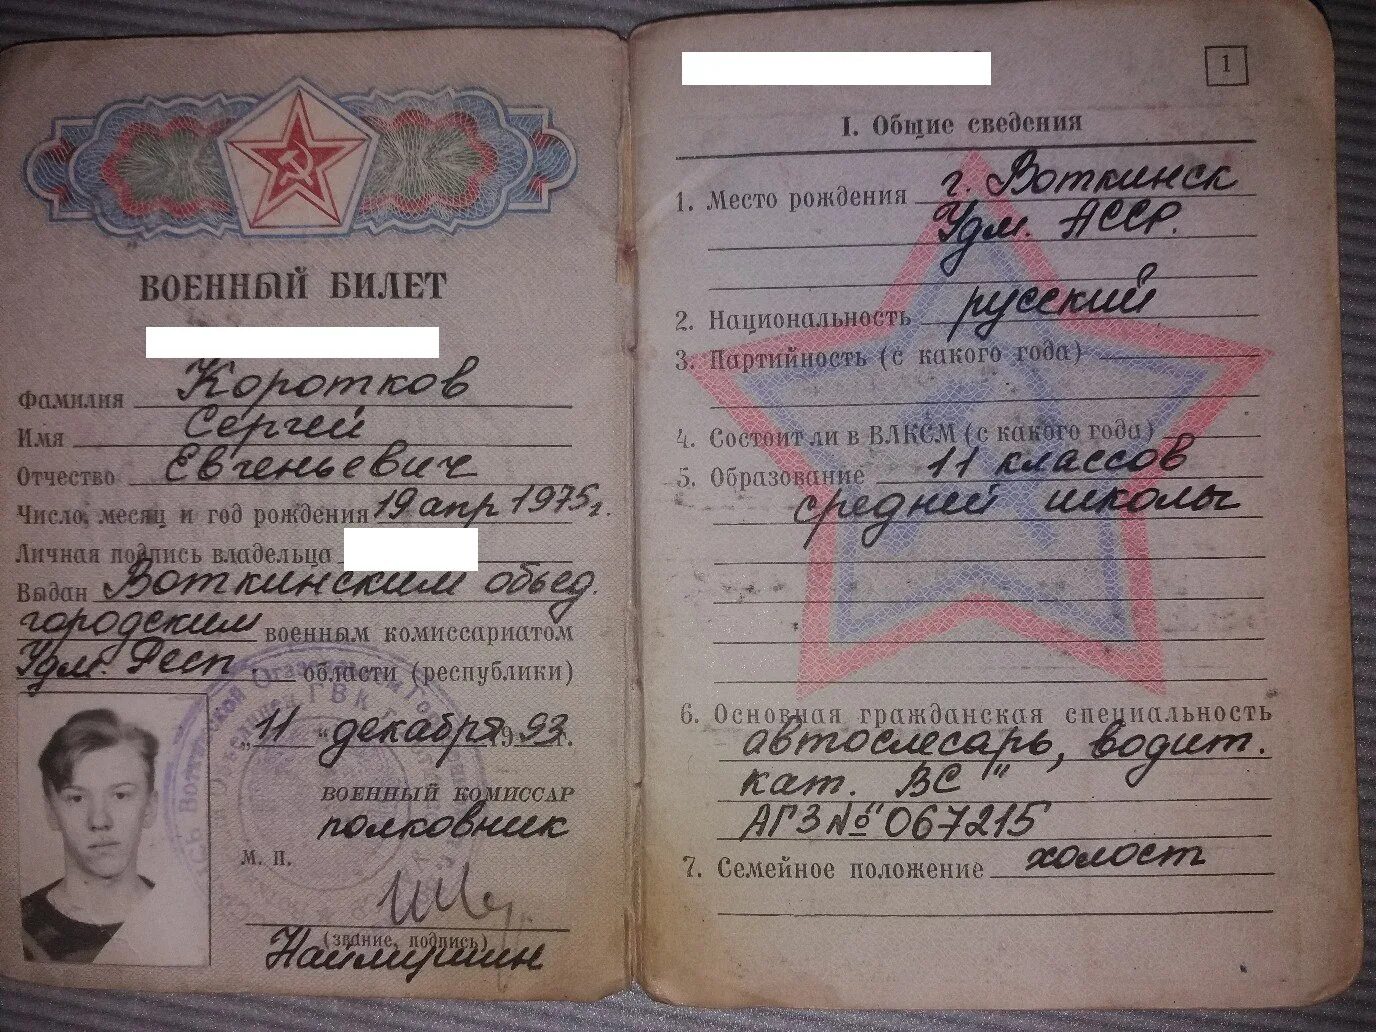 ВОЕННЫЙ БИЛЕТ
Фамилия Коротков
Имя Сергей
Отчество Евгеньевич
Число, месяц и год рождения 19 апр 1975 г.
Личная подпись владельца
Выдан Воткинским объед.
городским военным комиссариатом
Удм. Респ. области (республики)
„11“ декабря 1993 г.
ВОЕННЫЙ КОМИССАР
полковник
М. П.
(звание, подпись)
1
I. Общие сведения
1. Место рождения г. Воткинск
Удм. АССР.
2. Национальность русский
3. Партийность (с какого года)
4. Состоит ли в ВЛКСМ (с какого года)
5. Образование 11 классов
средней школы
6. Основная гражданская специальность
автослесарь, водит.
кат. ВС"
АГЗ № 067215
7. Семейное положение холост